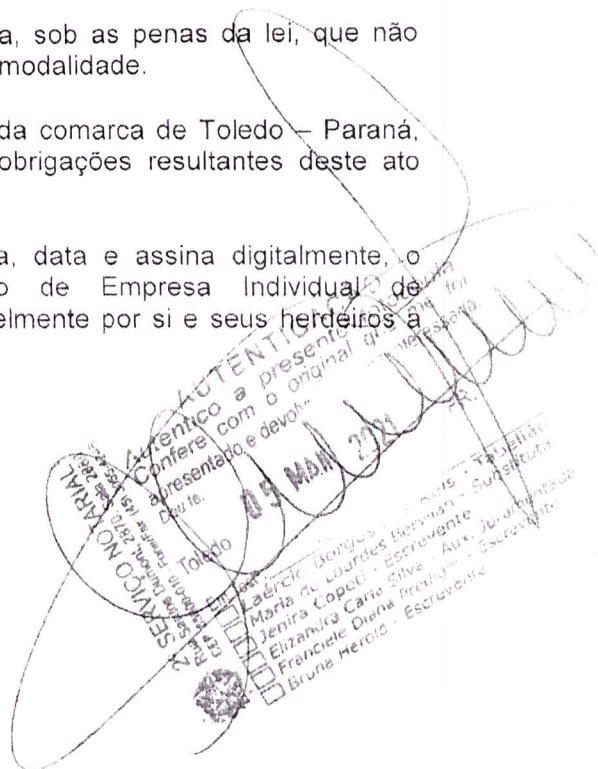 a, sob as penas da lei, que não
modalidade.
da comarca de Toledo – Paraná,
obrigações resultantes deste ato
a, data e assina digitalmente, o
o de Empresa Individual de
elmente por si e seus herdeiros a
AUTENTICAÇÃO
Autentico a presente fotocópia
Confere com o original que me foi
apresentado e devolvi
interessado.
Dou fé.
Toledo
PR.
05 MAR 2021
2º SERVIÇO NOTARIAL
Laércio Borges - Tabelião
Maria de Lourdes - Substituta
Jenira - Escrevente
Elizandra Silva - Aux. Juramentada
Franciele Diana - Escrevente
Bruna - Escrevente